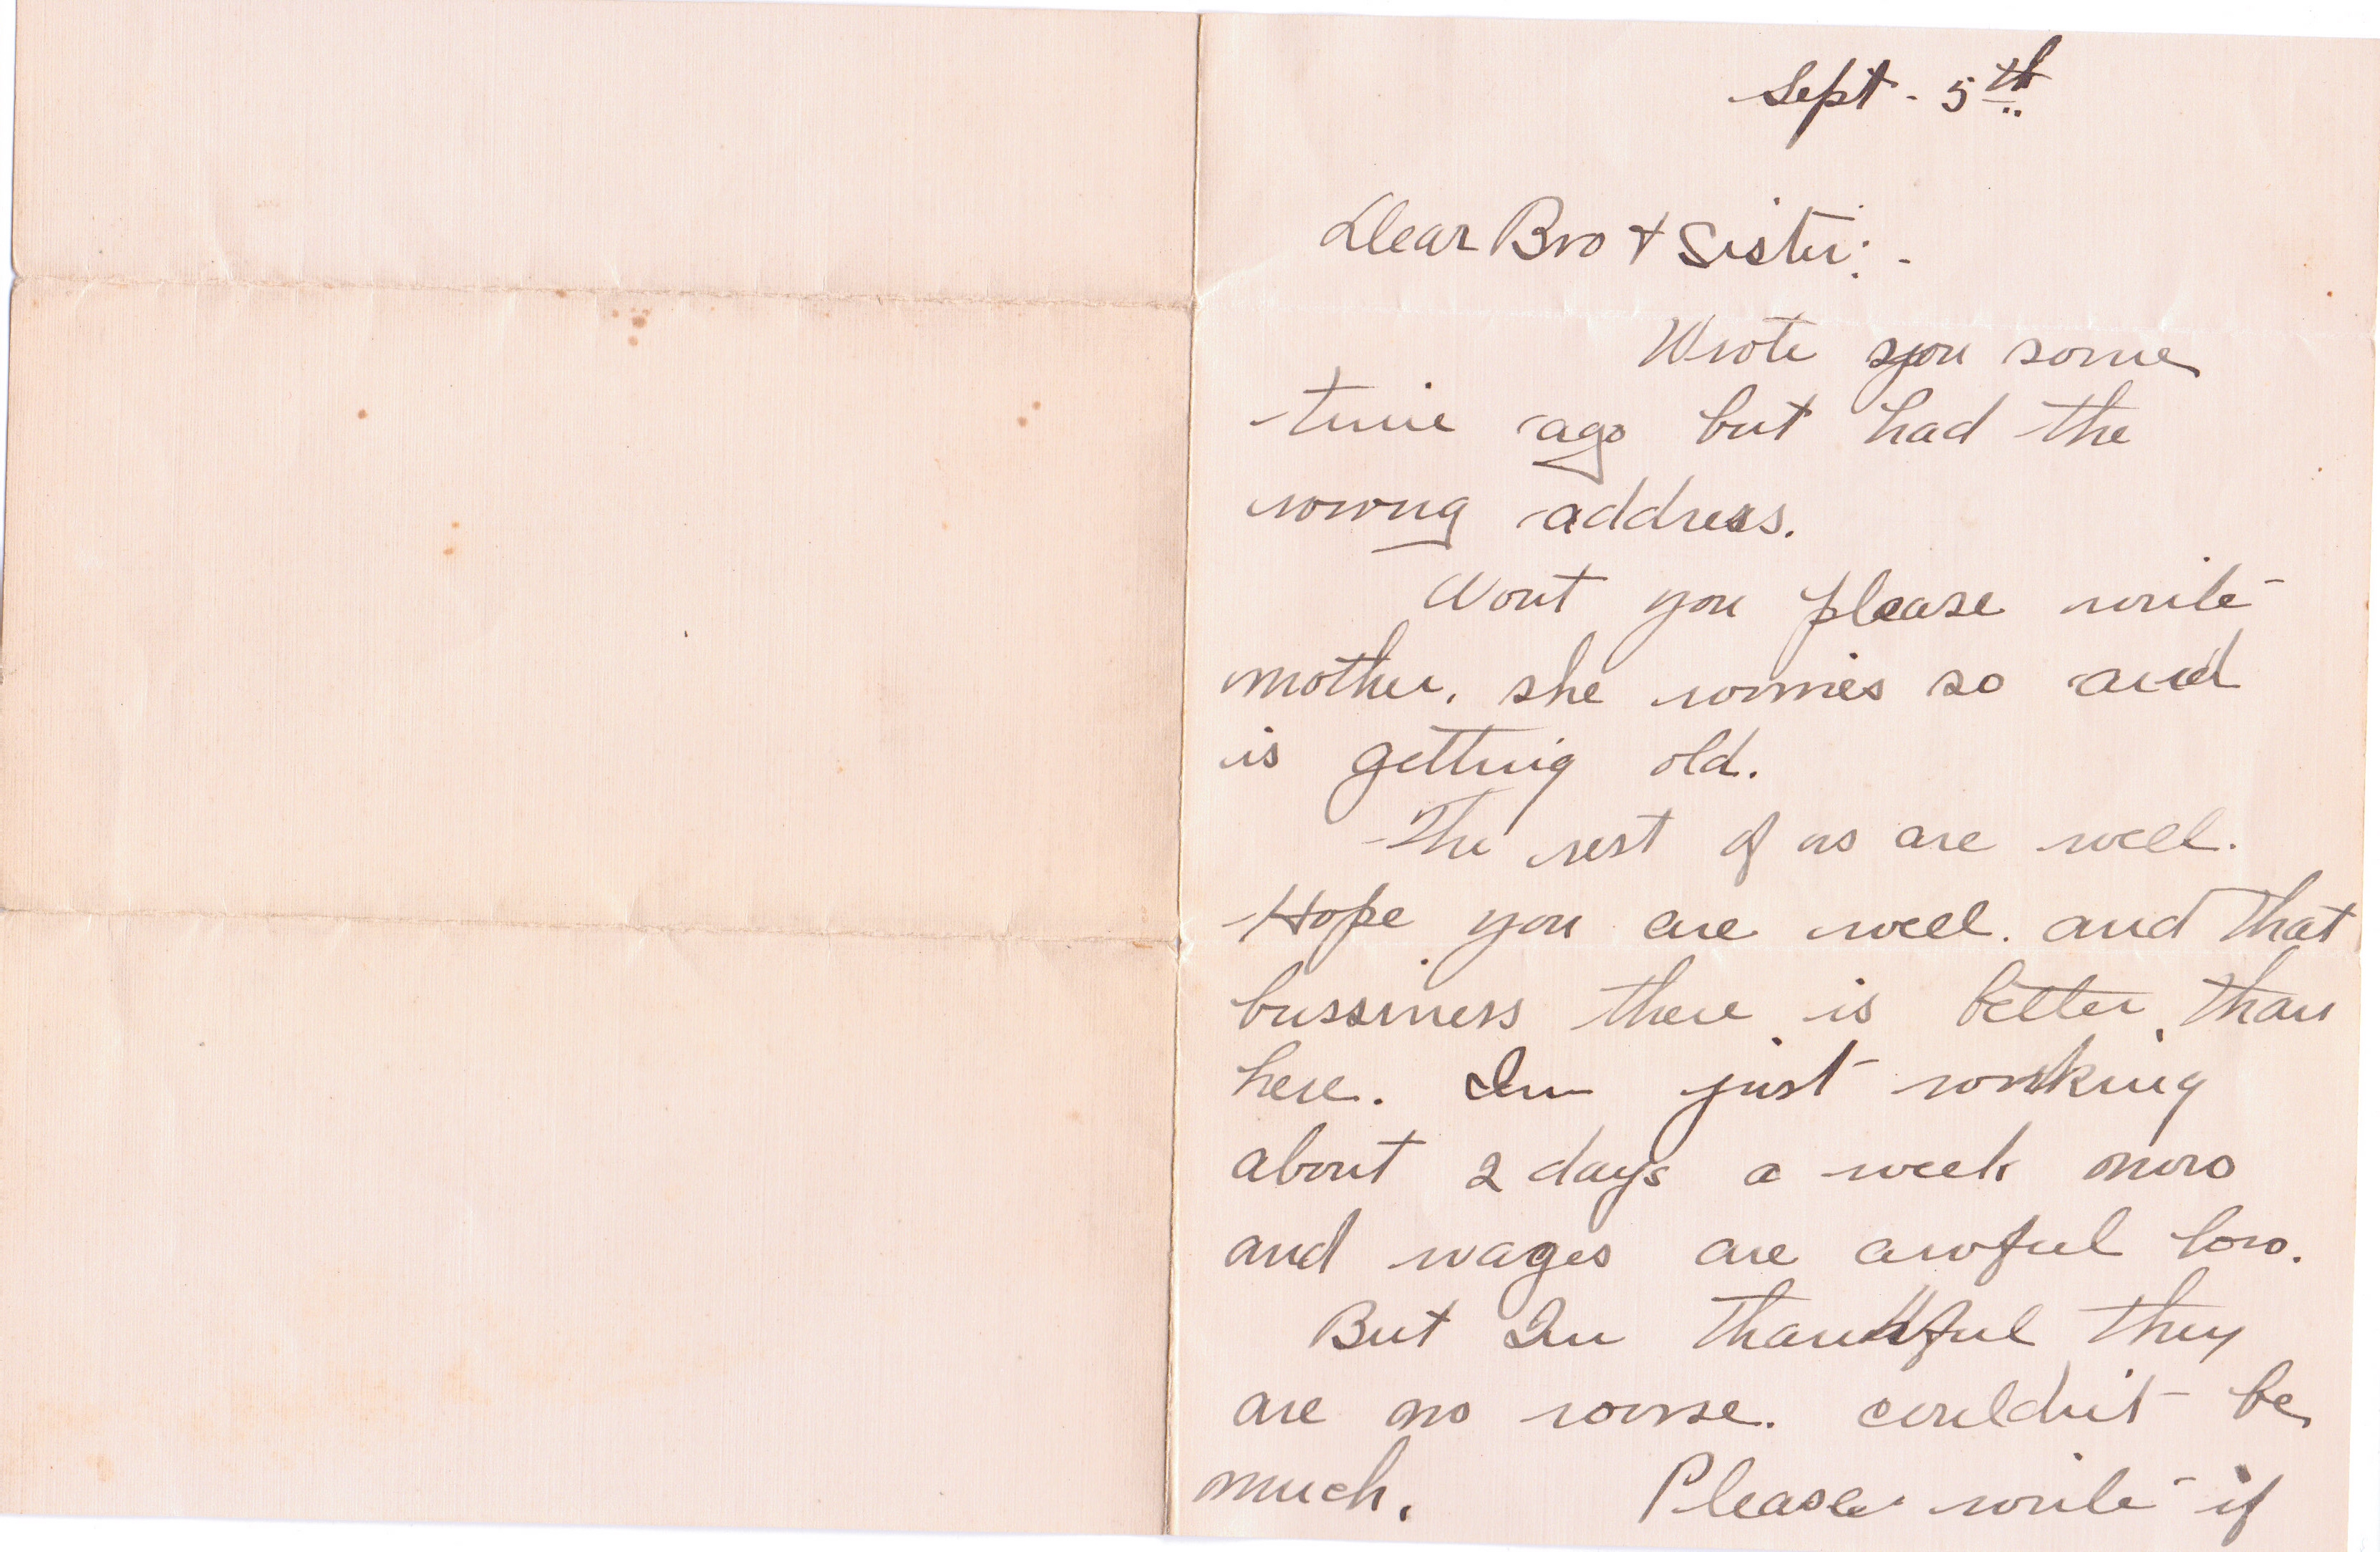 Sept - 5th
Dear Bro + Sister: -
Wrote you some
time ago but had the
wrong address.
Wont you please write
mother. she worries so and
is getting old.
The rest of us are well.
Hope you are well. and that
bussiness there is better than
here. Im just working
about 2 days a week now
and wages are awful low.
But Im thankful they
are no worse. couldn't be
much. Please write if